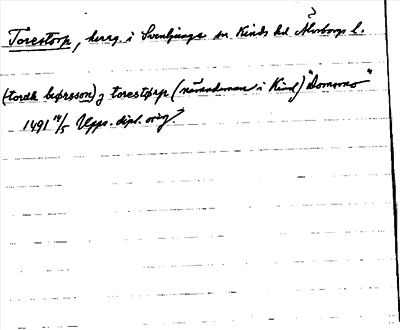 Torestorp, herrg. i Svenljunga sn. Kinds hd Älvsborgs l.
(tordh biørsson) j torestørp (nämndeman i Kind) "Domsmo"
1491 14/5 Upps. dipl. orig.